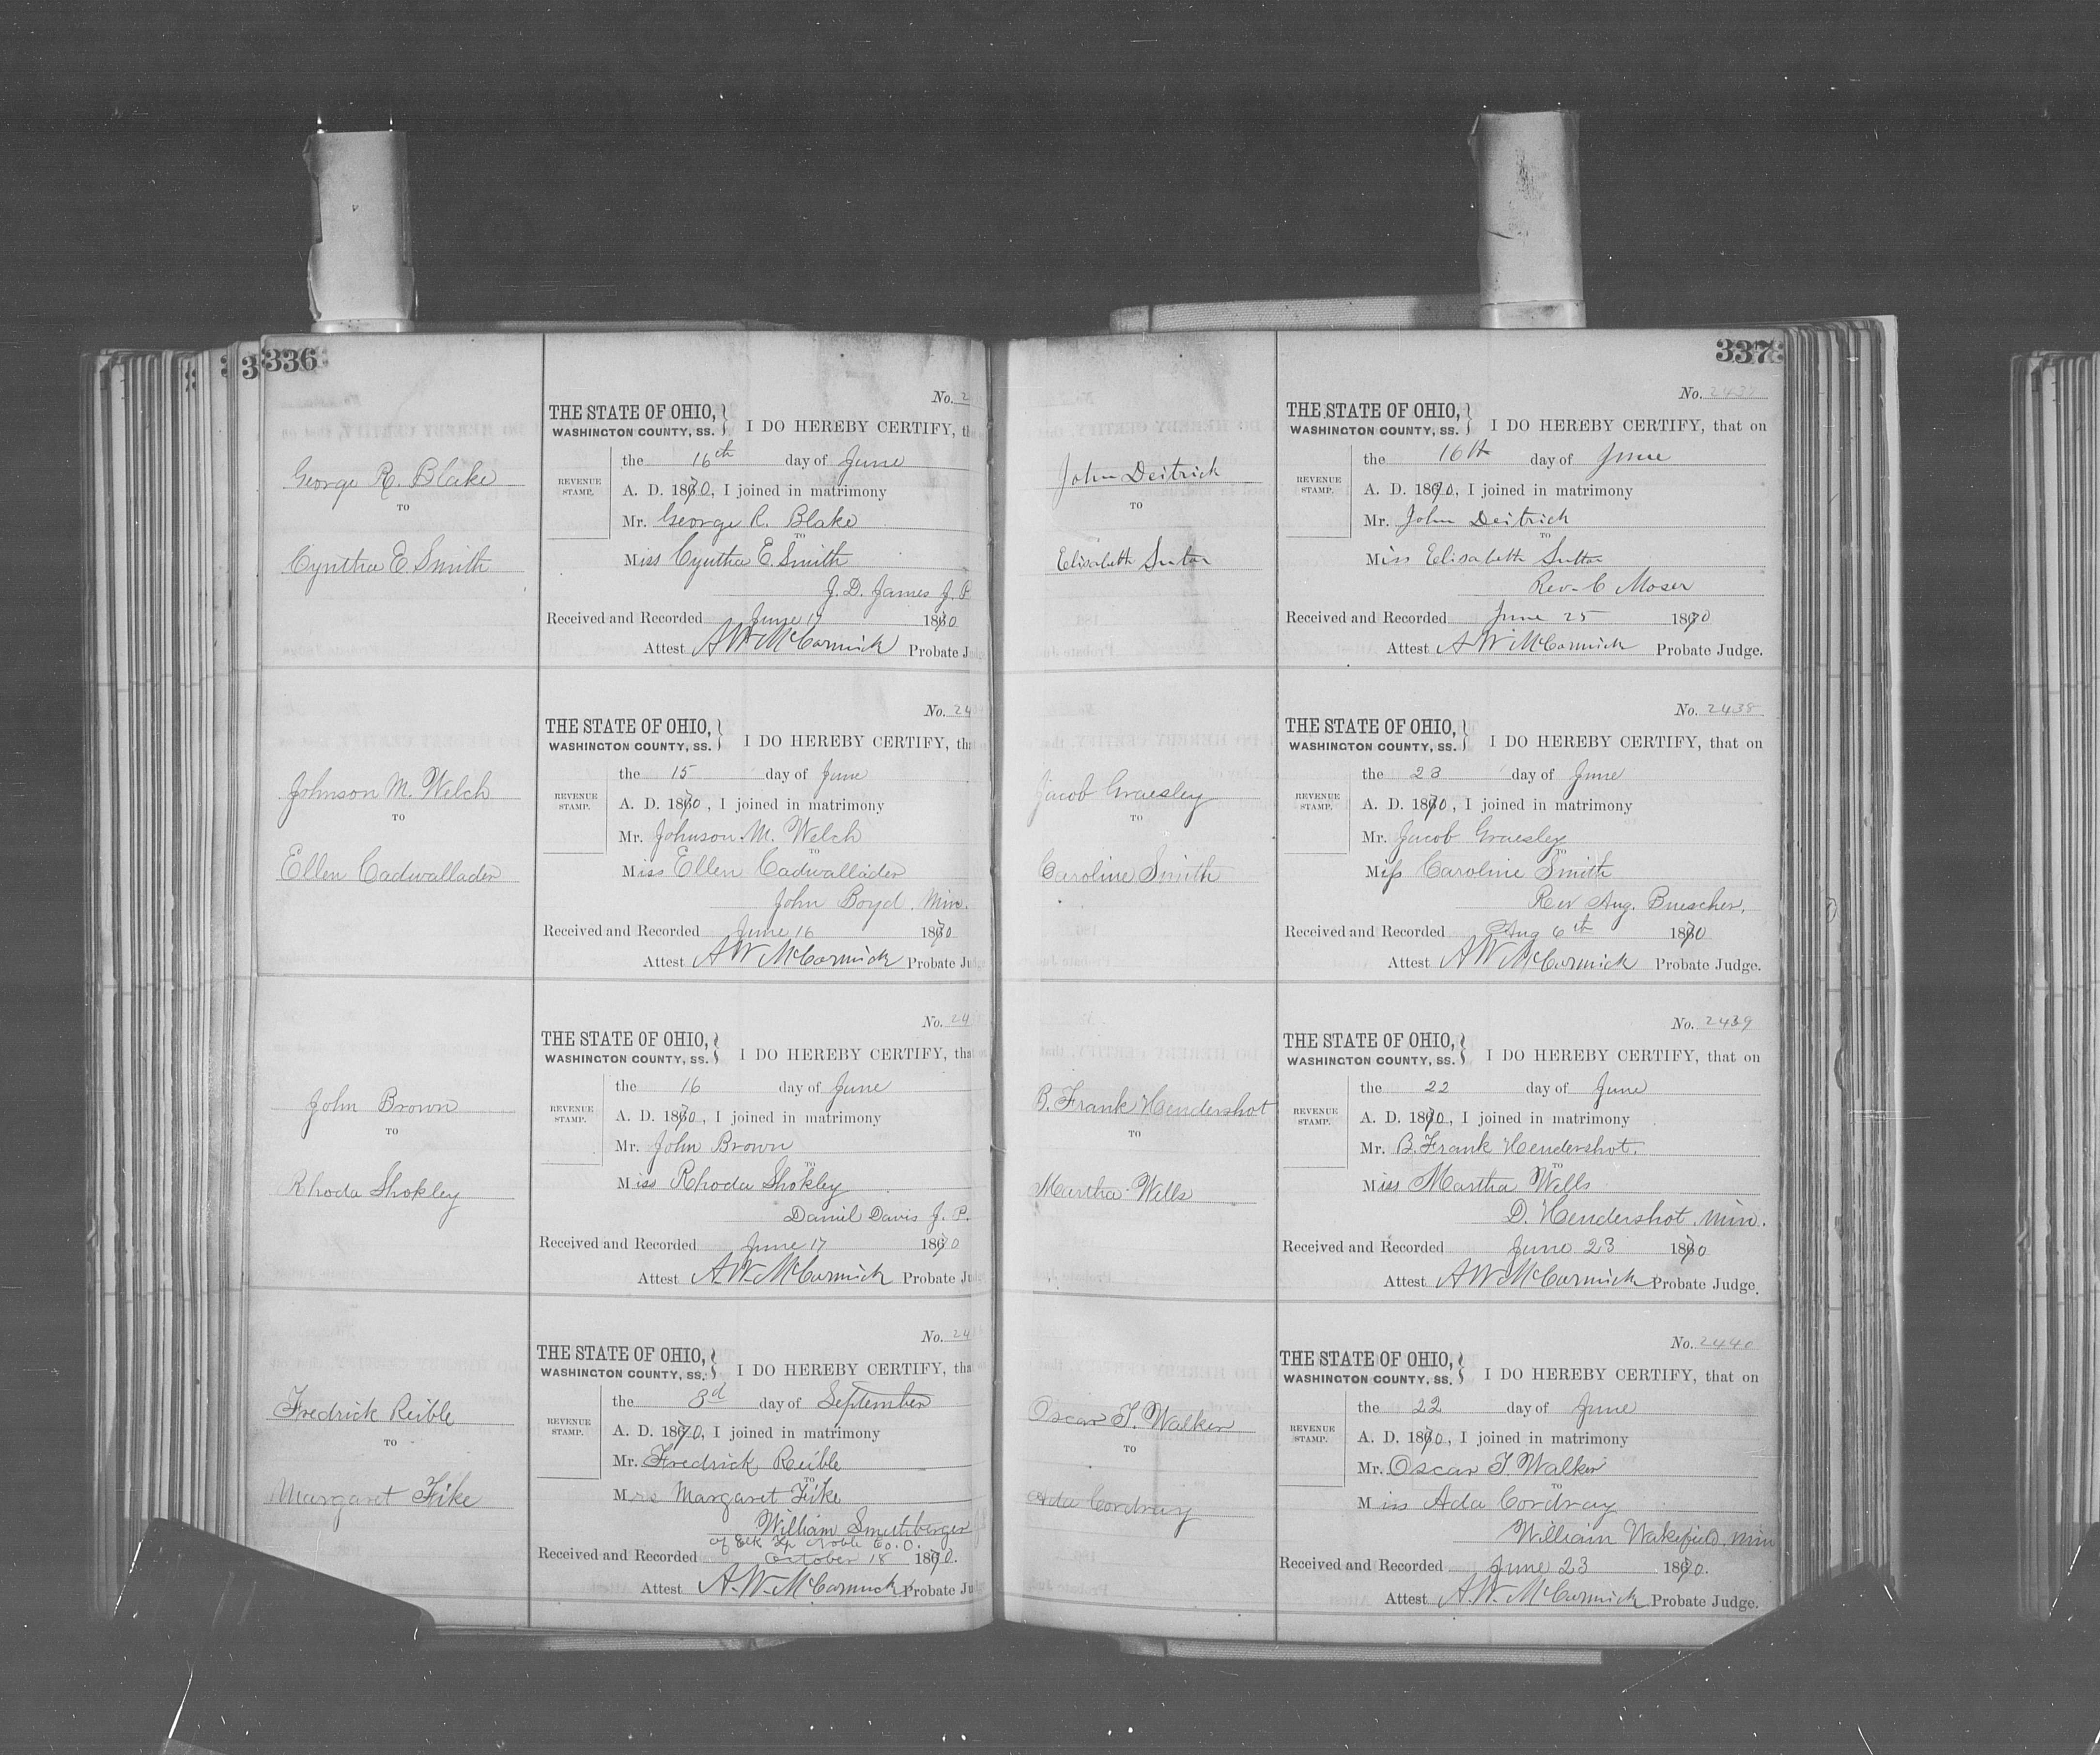 336
George R. Blake
TO
Cynthia E. Smith
No. 2
THE STATE OF OHIO,
WASHINGTON COUNTY, SS.
I DO HEREBY CERTIFY, th
REVENUE STAMP.
the 16th day of June
A. D. 1870, I joined in matrimony
Mr. George R. Blake
TO
Miss Cyntha E. Smith
J. D. James J. P.
Received and Recorded June 17 1870
Attest A W McCormick Probate J
Johnson M. Welch
TO
Ellen Cadwallader
No. 24
THE STATE OF OHIO,
WASHINGTON COUNTY, SS.
I DO HEREBY CERTIFY, th
REVENUE STAMP.
the 15 day of June
A. D. 1870, I joined in matrimony
Mr. Johnson M. Welch
TO
Miss Ellen Cadwallader
John Boyd. Min.
Received and Recorded June 16 1870
Attest A W McCormick Probate Ju
John Brown
TO
Rhoda Shokley
No. 24
THE STATE OF OHIO,
WASHINGTON COUNTY, SS.
I DO HEREBY CERTIFY, tha
REVENUE STAMP.
the 16 day of June
A. D. 1870, I joined in matrimony
Mr. John Brown
TO
Miss Rhoda Shokley
Daniel Davis J. P.
Received and Recorded June 17 1870
Attest A. W. McCormick Probate Ju
Fredrick Reible
TO
Margaret Fike
No. 24
THE STATE OF OHIO,
WASHINGTON COUNTY, SS.
I DO HEREBY CERTIFY, tha
REVENUE STAMP.
the 3d day of September
A. D. 1870, I joined in matrimony
Mr. Fredrick Reible
TO
Mrs Margaret Fike
William Smithberger
of Elk Tp Noble Co. O.
Received and Recorded October 18 1870.
Attest A. W. McCormick Probate Ju
337
John Deitrick
TO
Elisabeth Suton
No. 2437
THE STATE OF OHIO,
WASHINGTON COUNTY, SS.
I DO HEREBY CERTIFY, that on
REVENUE STAMP.
the 16th day of June
A. D. 1870, I joined in matrimony
Mr. John Deitrich
TO
Miss Elisabeth Sutton
Rev. C Moser
Received and Recorded June 25 1870
Attest A W McCormick Probate Judge.
Jacob Graesley
TO
Caroline Smith
No. 2438
THE STATE OF OHIO,
WASHINGTON COUNTY, SS.
I DO HEREBY CERTIFY, that on
REVENUE STAMP.
the 23 day of June
A. D. 1870, I joined in matrimony
Mr. Jacob Graesley
TO
Miss Caroline Smith
Rev Aug. Buescher.
Received and Recorded Aug 6th 1870
Attest A W McCormick Probate Judge.
B. Frank Hendershot
TO
Martha Wells
No. 2439
THE STATE OF OHIO,
WASHINGTON COUNTY, SS.
I DO HEREBY CERTIFY, that on
REVENUE STAMP.
the 22 day of June
A. D. 1870, I joined in matrimony
Mr. B. Frank Hendershot.
TO
Miss Martha Wells
D. Hendershot. Min.
Received and Recorded June 23 1870
Attest A W McCormick Probate Judge.
Oscar T. Walker
TO
Ada Cordray
No. 2440
THE STATE OF OHIO,
WASHINGTON COUNTY, SS.
I DO HEREBY CERTIFY, that on
REVENUE STAMP.
the 22 day of June
A. D. 1870, I joined in matrimony
Mr. Oscar T. Walker
TO
Miss Ada Cordray
William Wakefield. Min
Received and Recorded June 23 1870.
Attest A. W. McCormick Probate Judge.